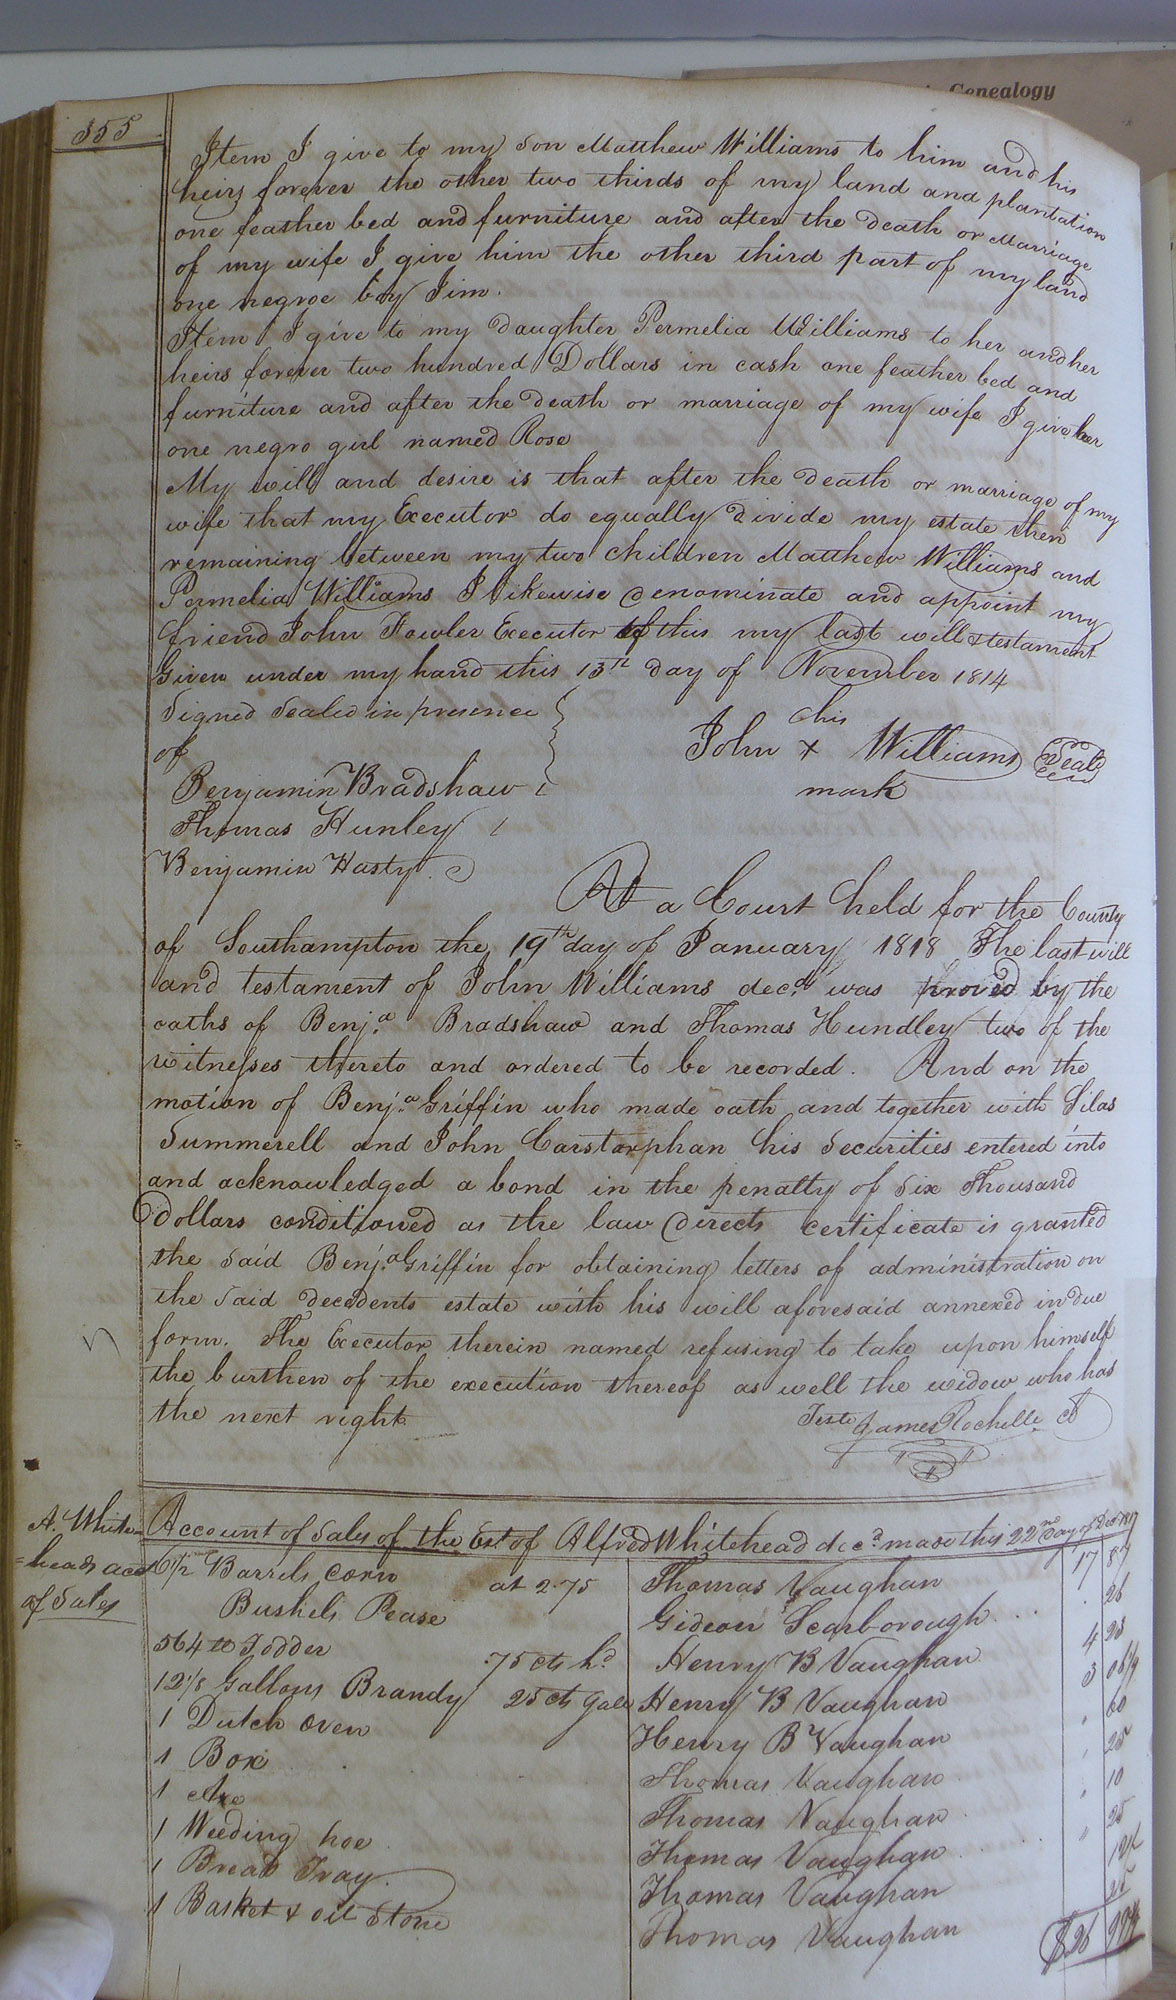 Genealogy
355
Item I give to my son Matthew Williams to him and his
heirs forever the other two thirds of my land and plantation
one feather bed and furniture and after the death or Marriage
of my wife I give him the other third part of my land
one negroe boy Jim.
Item I give to my daughter Permelia Williams to her and her
heirs forever two hundred Dollars in cash one feather bed and
furniture and after the death or marriage of my wife I give her
one negro girl named Rose
My will and desire is that after the death or marriage of my
wife that my Executor do equally divide my estate then
remaining between my two children Matthew Williams and
Permelia Williams I likewise denominate and appoint my
friend John Fowler Executor of this my last will & testament
Given under my hand this 13th day of November 1814
Signed Sealed in presence
of
his
John + Williams Seal
mark
Benjamin Bradshaw
Thomas Hunley
Benjamin Hasty
At a Court held for the County
of Southampton the 19th day of January 1818 The last will
and testament of John Williams decd. was proved by the
oaths of Benja. Bradshaw and Thomas Hundley two of the
witnesses thereto and ordered to be recorded. And on the
motion of Benja. Griffin who made oath and together with Silas
Summerell and John Carstarphan his Securities entered into
and acknowledged a bond in the penalty of Six Thousand
Dollars conditioned as the law directs certificate is granted
the said Benja. Griffin for obtaining letters of administration on
the said decedents estate with his will aforesaid annexed in due
form. The Executor therein named refusing to take upon himself
the burthen of the execution thereof as well the widow who has
the next right
Teste James Rochelle
A. White-
=heads acct
of Sales
Account of Sales of the Est of Alfred Whitehead decd. made this 22nd day of Decr 1817
6 1/2 Barrels Corn at 2.75 Thomas Vaughan 17 87
Bushels Pease Gideon Scarborough . 26
564 lb Fodder 75 cts hd. Henry B Vaughan 4 23
12 1/8 Gallons Brandy 25 cts Gall Henry B Vaughan 3
1 Dutch Oven Henry B Vaughan 60
1 Box Thomas Vaughan 25
1 Axe Thomas Vaughan 10
1 Weeding hoe Thomas Vaughan 25
1 Bread Tray Thomas Vaughan
1 Basket & oil Stone Thomas Vaughan 25
$26